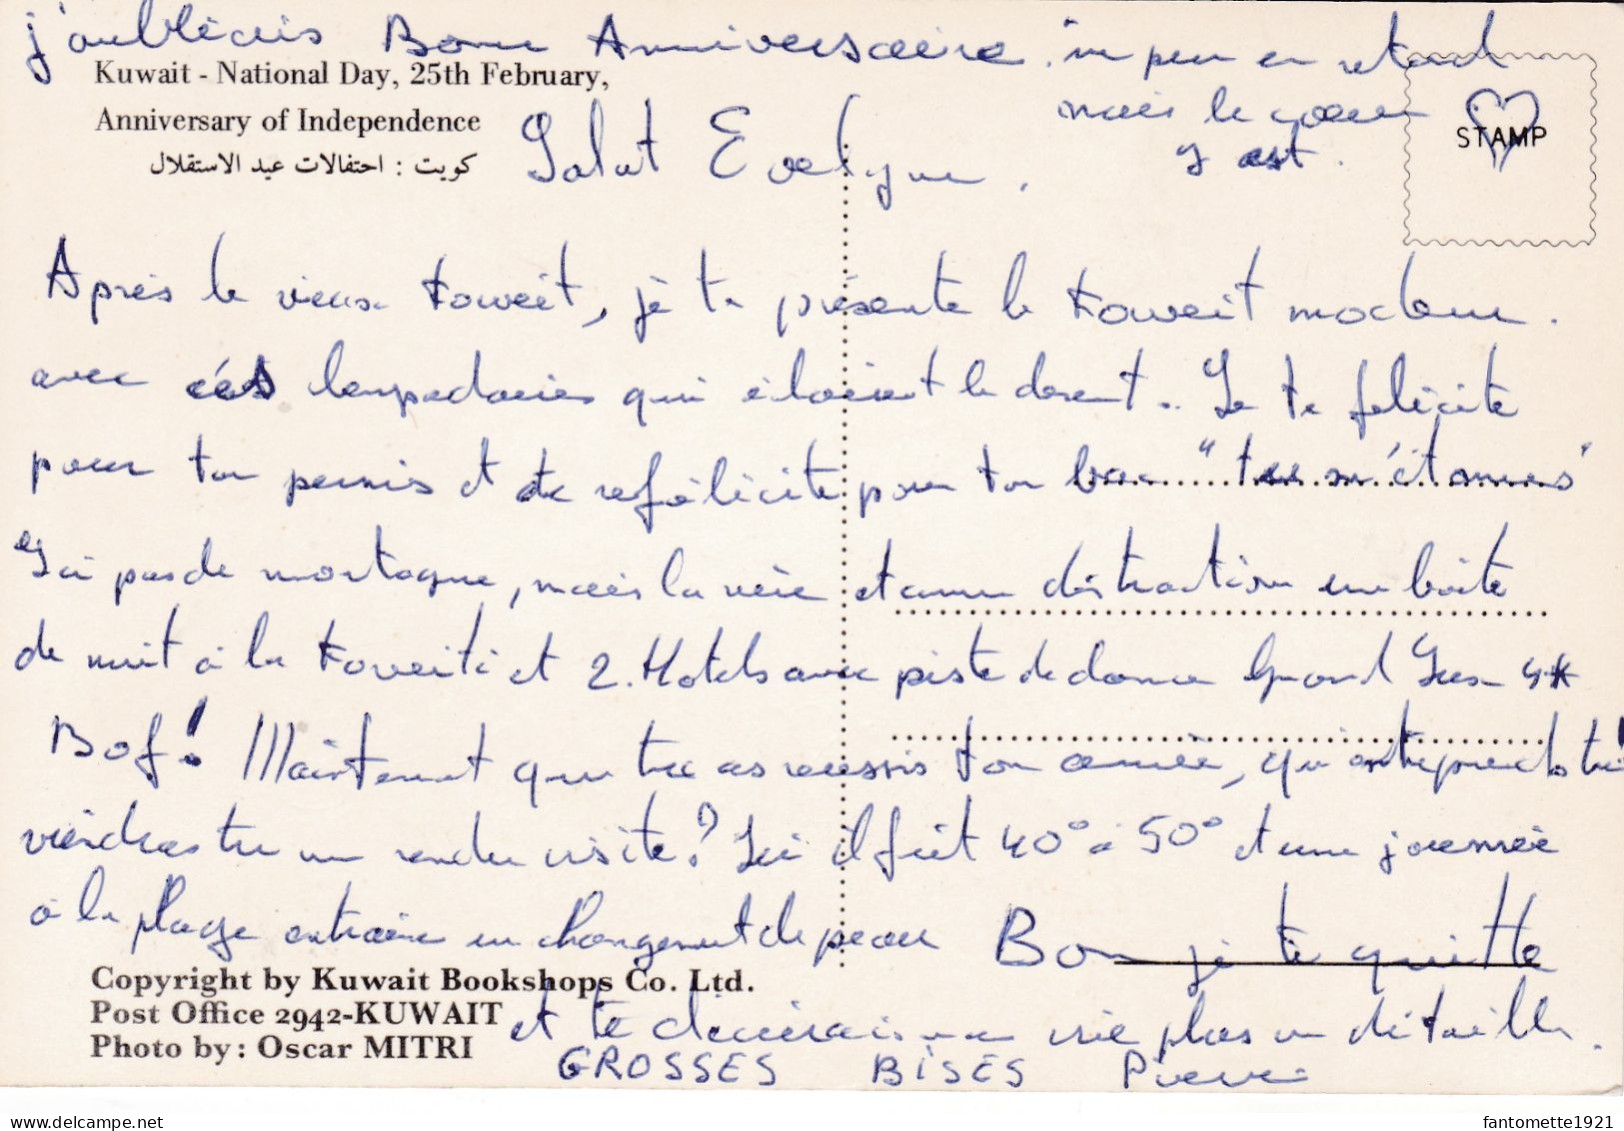 j'oubliais Bonne Anniversaire. un peu en retard
mais le coeur
y est.
Kuwait - National Day, 25th February,
Anniversary of Independence
كويت : احتفالات عيد الاستقلال
STAMP
Salut Evelyne,
Après le vieux Koweit, je te présente le Koweit moderne.
avec ces lampadaires qui éclairent le desert. Je te félicite
pour ton permis et te refélicite pour ton bac "tu m'étonnes"
Ici pas de montagne, mais la mer et comme distraction une boite
de nuit à la Koveiti et 2 Hotels avec piste de danse Grand Luxe 4*
Bof! Maintenant que tu as reussis ton année, qu'entreprends tu!
viendras tu me rendre visite? Ici il fait 40° à 50° et une journée
à la plage entraine un changement de peau Bon je te quitte
et te decrirais ma vie plus en détails.
GROSSES BISES Pierre
Copyright by Kuwait Bookshops Co. Ltd.
Post Office 2942-KUWAIT
Photo by: Oscar MITRI
fantomette1921